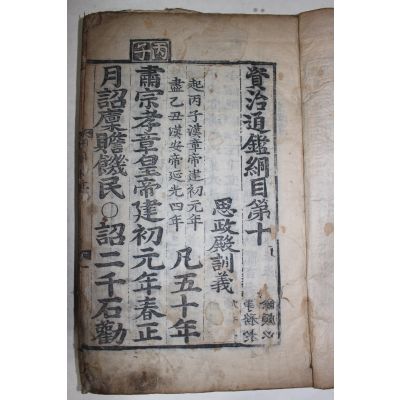 資治通鑑綱目第十
思政殿訓義
起丙子漢章帝建初元年
盡乙丑漢安帝延光四年
凡五十年
丙子
肅宗孝章皇帝建初元年春正
月詔稟贍饑民○詔二千石勸